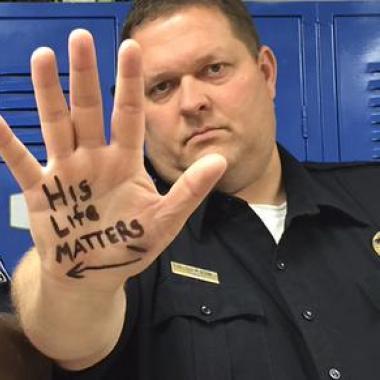 HiS
Life
MATTERS